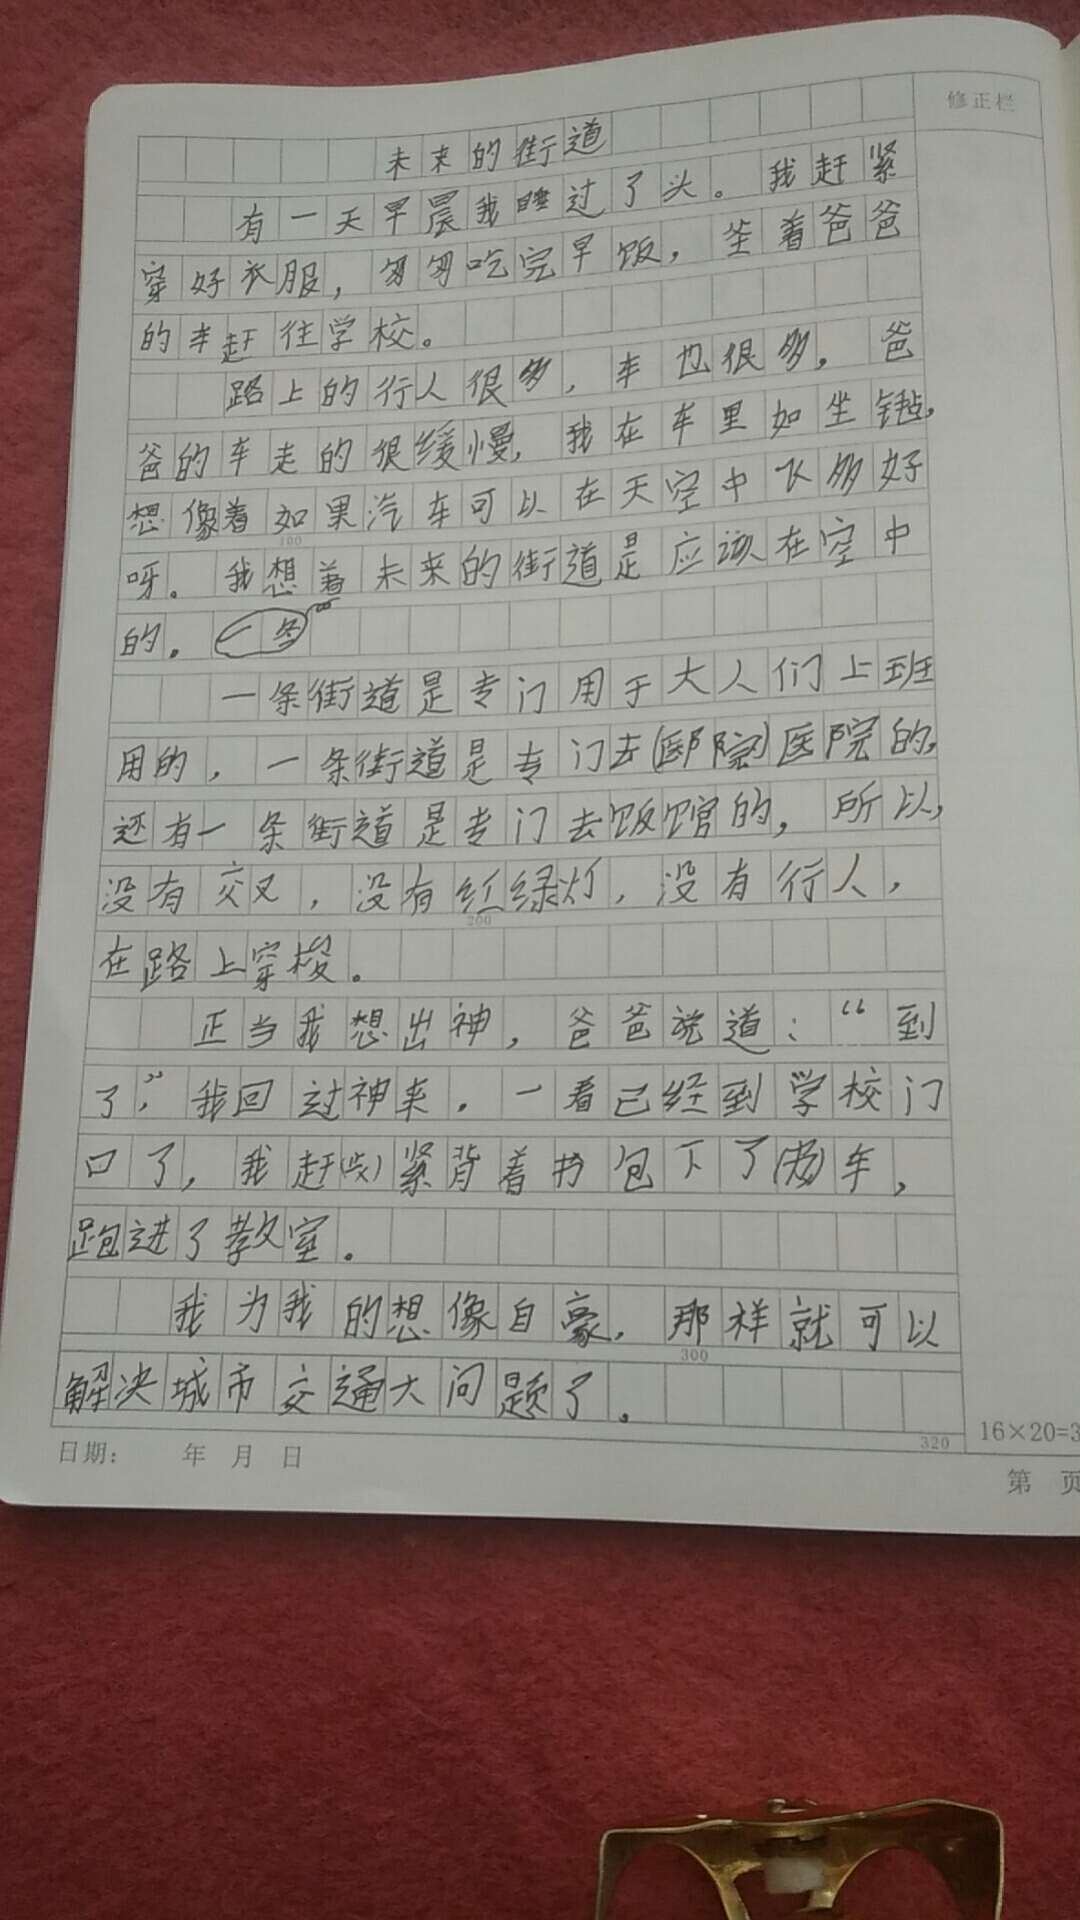 修正栏
未来的街道
有一天早晨我睡过了头。我赶紧
穿好衣服，匆匆吃完早饭，坐着爸爸
的车赶往学校。
路上的行人很多，车也很多。爸
爸的车走的很缓慢，我在车里如坐针毡，
想像着如果汽车可以在天空中飞多好
100
呀。我想着未来的街道是应该在空中
的。一条
一条街道是专门用于大人们上班
用的，一条街道是专门去(医院)医院的，
还有一条街道是专门去饭馆的，所以，
没有交叉，没有红绿灯，没有行人，
200
在路上穿梭。
正当我想出神，爸爸说道：“到
了，”我回过神来。一看已经到学校门
口了，我赶紧背着书包下了车，
跑进了教室。
我为我的想像自豪，那样就可以
300
解决城市交通大问题了。
320
16×20=3
日期： 年 月 日
第 页